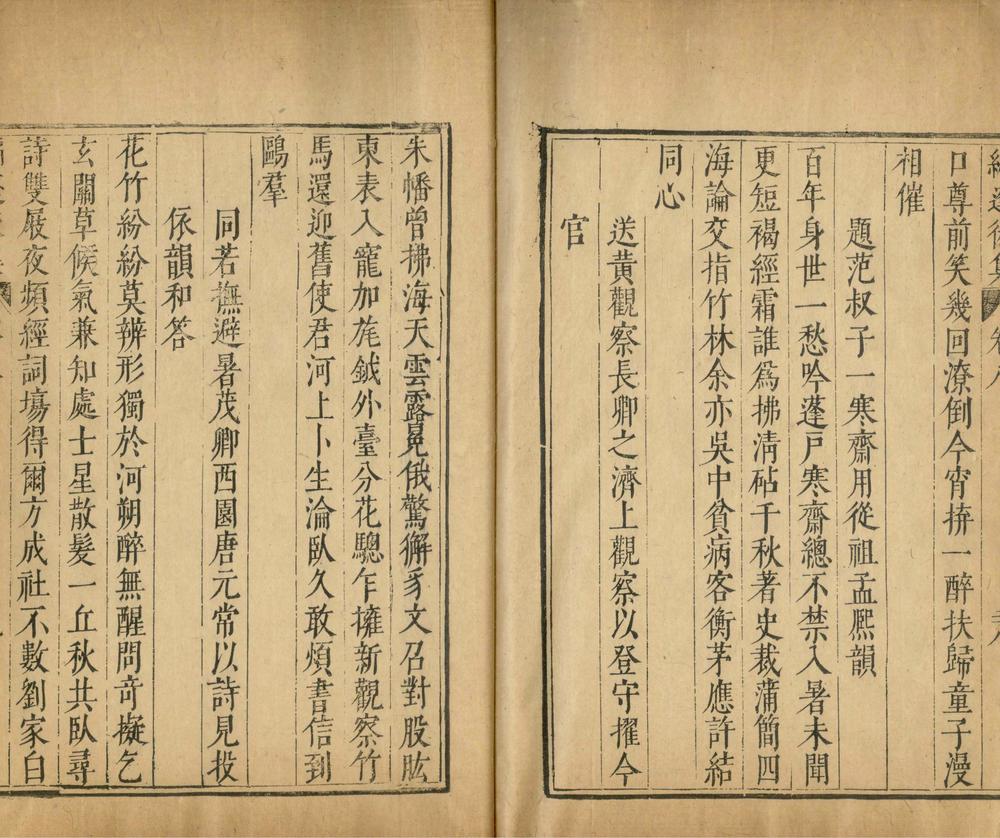 口尊前笑幾回潦倒今宵拚一醉扶歸童子漫
相催
題范叔子一寒齋用從祖孟熈韻
百年身世一愁吟蓬戸寒齋總不禁入暑未聞
更短褐經霜誰爲拂淸砧千秋著史裁蒲簡四
海論交指竹林余亦吳中貧病客衡茅應許結
同心
送黃觀察長卿之濟上觀察以登守擢今
官
朱幡曾拂海天雲露冕俄驚獬豸文召對股肱
東表入寵加旄鉞外臺分花驄乍擁新觀察竹
馬還迎舊使君河上卜生淪臥久敢煩書信到
鷗羣
同若撫避暑茂卿西園唐元常以詩見投
依韻和答
花竹紛紛莫辨形獨於河朔醉無醒問奇擬乞
玄關草候氣兼知處士星散髮一丘秋共臥尋
詩雙屐夜頻經詞塲得爾方成社不數劉家白